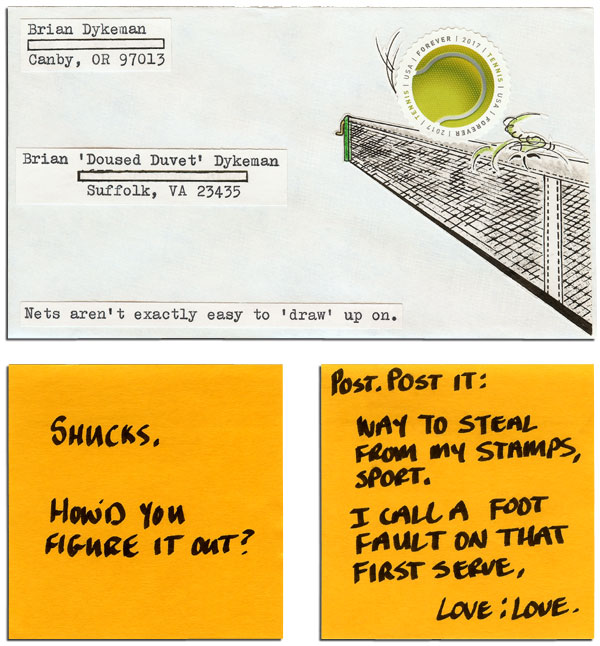 Brian Dykeman
Canby, OR 97013
TENNIS | USA | FOREVER | 2017 | TENNIS | USA | FOREVER | 2017 |
Brian 'Doused Duvet' Dykeman
Suffolk, VA 23435
Nets aren't exactly easy to 'draw' up on.
SHUCKS.
HOW'D YOU
FIGURE IT OUT?
POST. POST IT:
WAY TO STEAL
FROM MY STAMPS,
SPORT.
I CALL A FOOT
FAULT ON THAT
FIRST SERVE,
LOVE : LOVE.